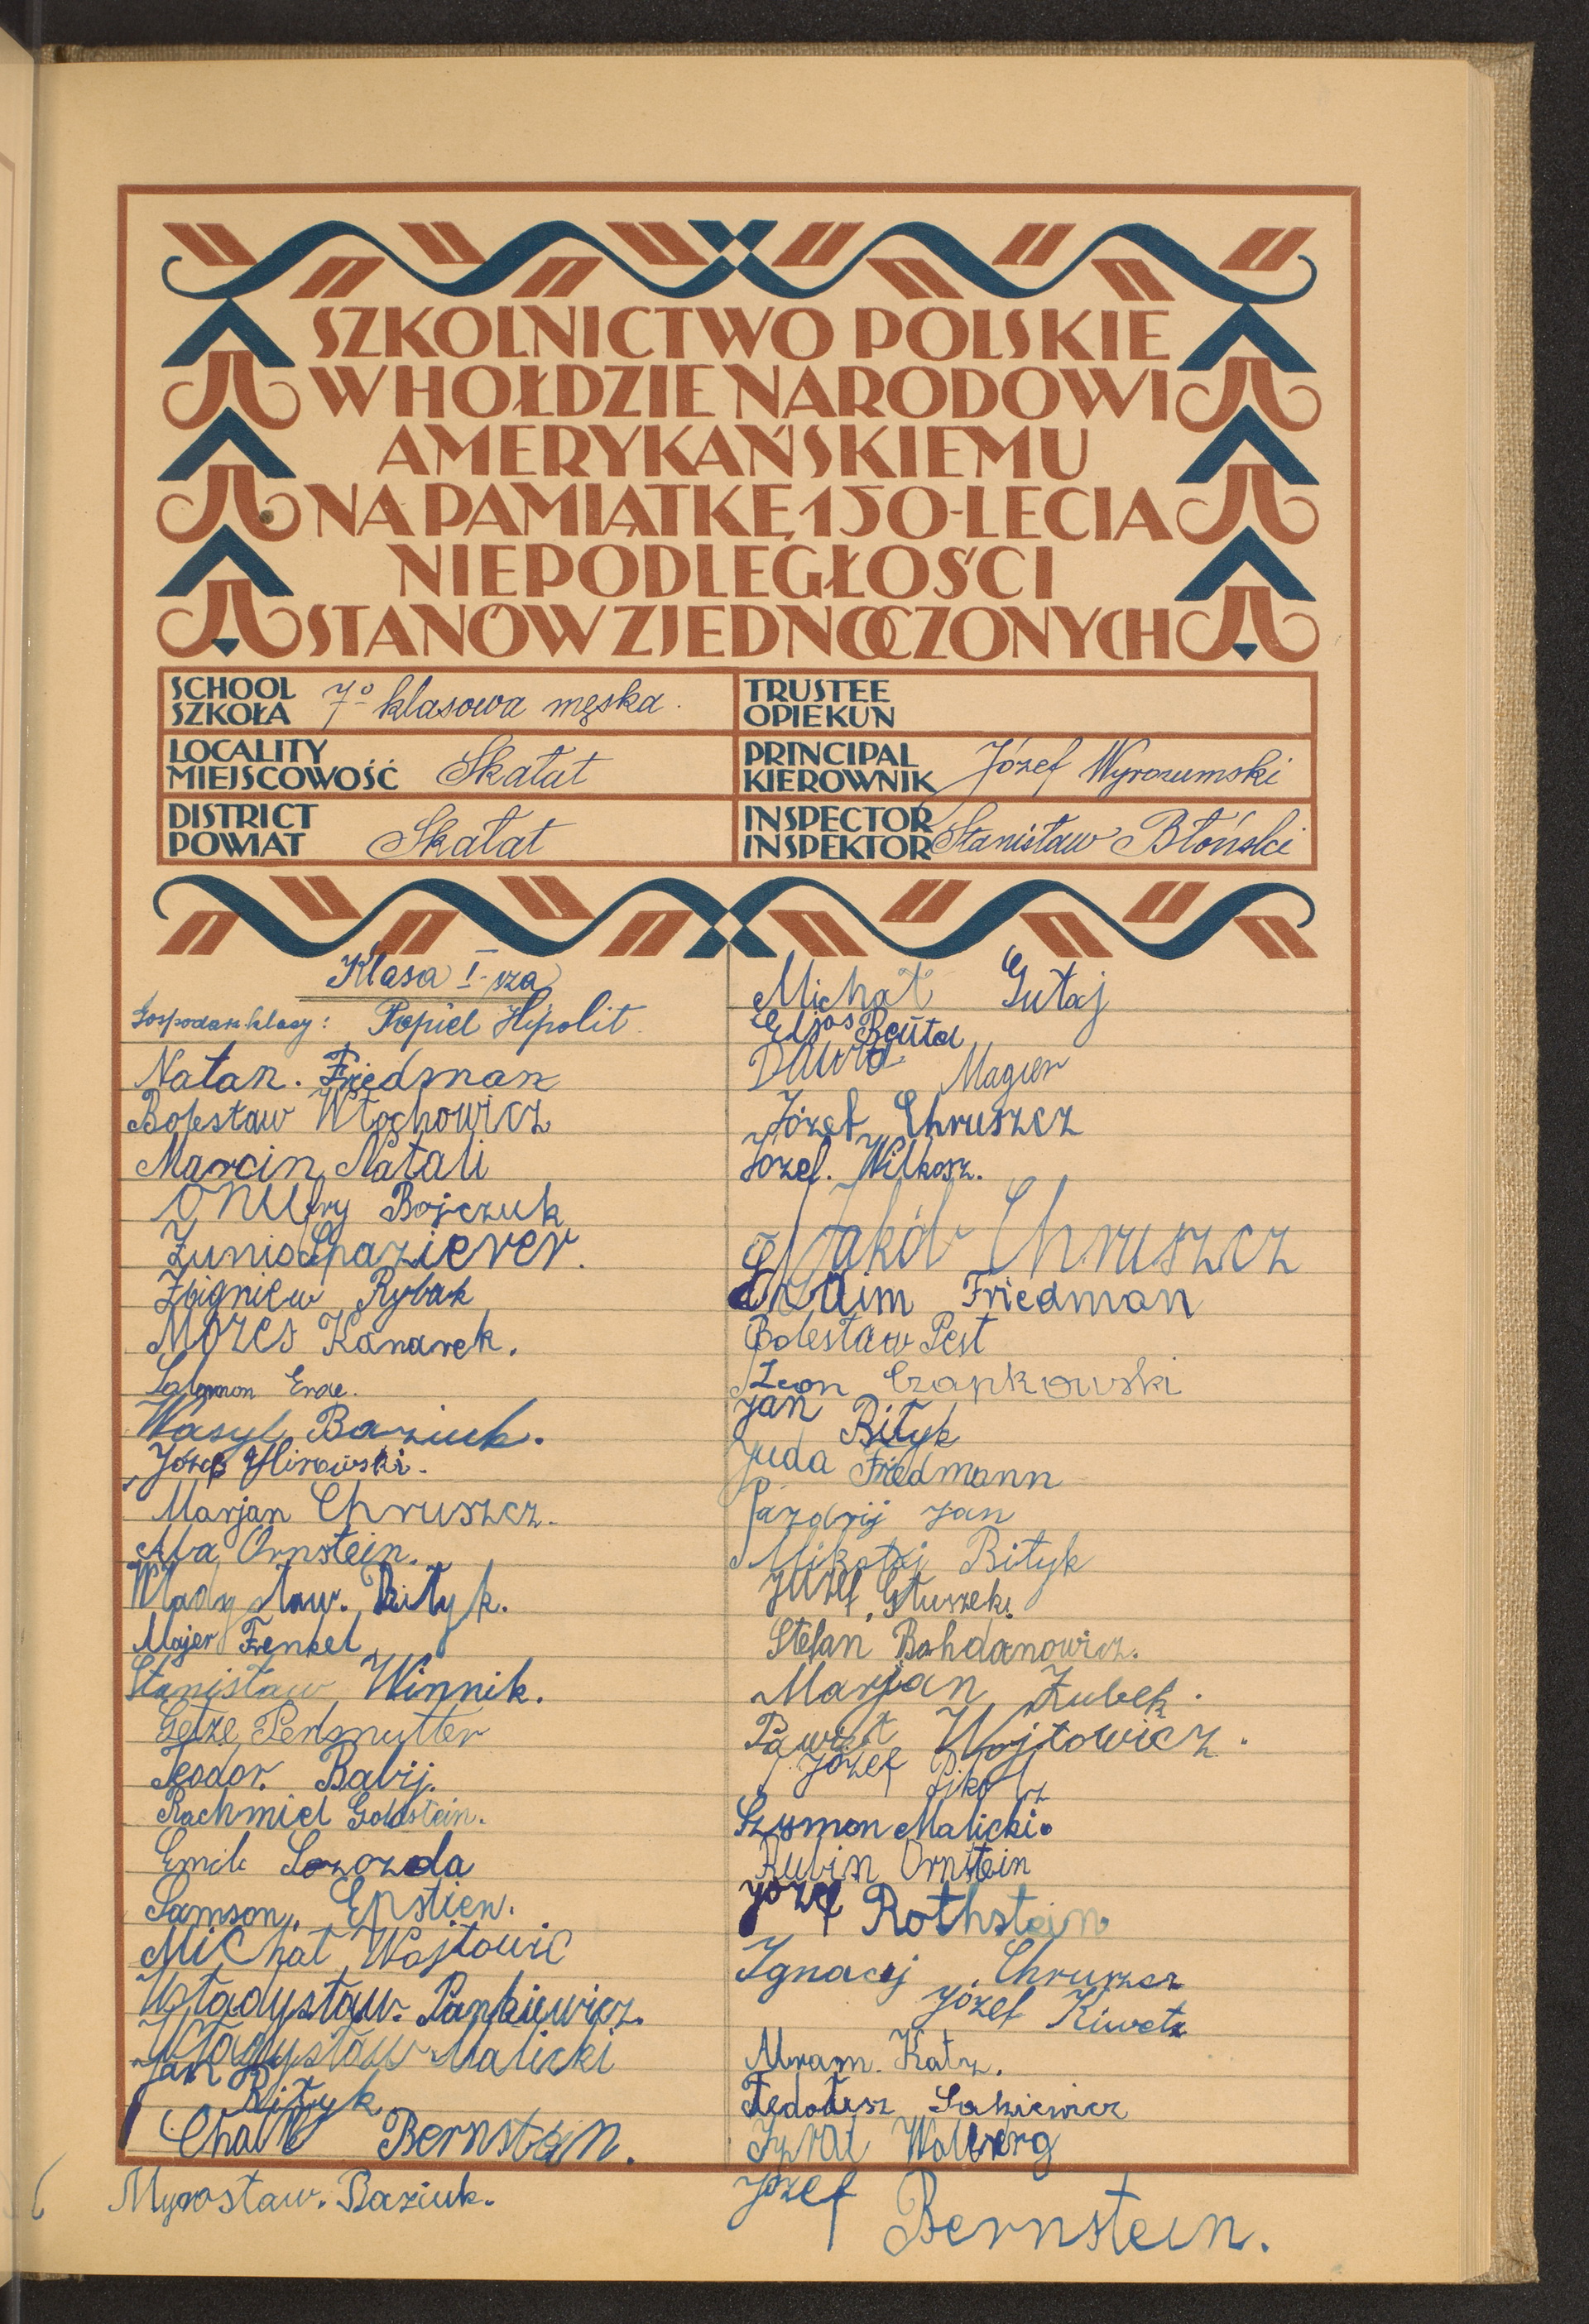 SZKOLNICTWO POLSKIE
W HOŁDZIE NARODOWI
AMERYKAŃSKIEMU
NA PAMIĄTKĘ 150-LECIA
NIEPODLEGŁOŚCI
STANÓW ZJEDNOCZONYCH
SCHOOL
SZKOŁA 7º klasowa męska.
TRUSTEE
OPIEKUN
LOCALITY
MIEJSCOWOŚĆ Skałat
PRINCIPAL
KIEROWNIK Józef Wyrozumski
DISTRICT
POWIAT Skałat
INSPECTOR
INSPEKTOR Stanisław Błoński
Klasa I-sza
Gospodarz klasy: Popiel Hipolit.
Natan. Friedman
Bolesław Włochowicz
Marcin Natali
ONUfry Bojczuk
Zunio Spazierer.
Zbigniew Rybak
Mozes Kanarek.
Salomon Erde.
Wasyl Baziuk.
Józef Hirowski.
Marjan Chruszcz.
Aba Ornstein.
Władysław. Bityk.
Majer Frenkel
Stanisław Winnik.
Getze Perlmutter
Teodor. Babij.
Rachmiel Goldstein.
Emil
Samson. Epstien.
Michał Wojtowic
Władysław. Pankiewicz.
Władysław Malicki
Jan
Bityk
Bernstein.
Myrosław. Baziuk.
Michał Gutaj
Eljas Beuta
Dawid Magier
Józef Chruszcz
Józef. Wilkosz.
Jakób Chruszcz
Chaim Friedman
Bolesław Pest
Leon Czankowski
Jan
Bityk
Juda Friedmann
Pazdrij Jan
Mikołaj Bityk
Józef Głuszek.
Stefan Bohdanowicz.
Marjan Zubek.
Paweł Wojtowicz.
Józef
Szymon Malicki.
Rubin Ornstein
Józef Rothstein
Ignacy Chruszcz
Józef
Abram. Katz.
Izrael Wolberg
Józef
Bernstein.